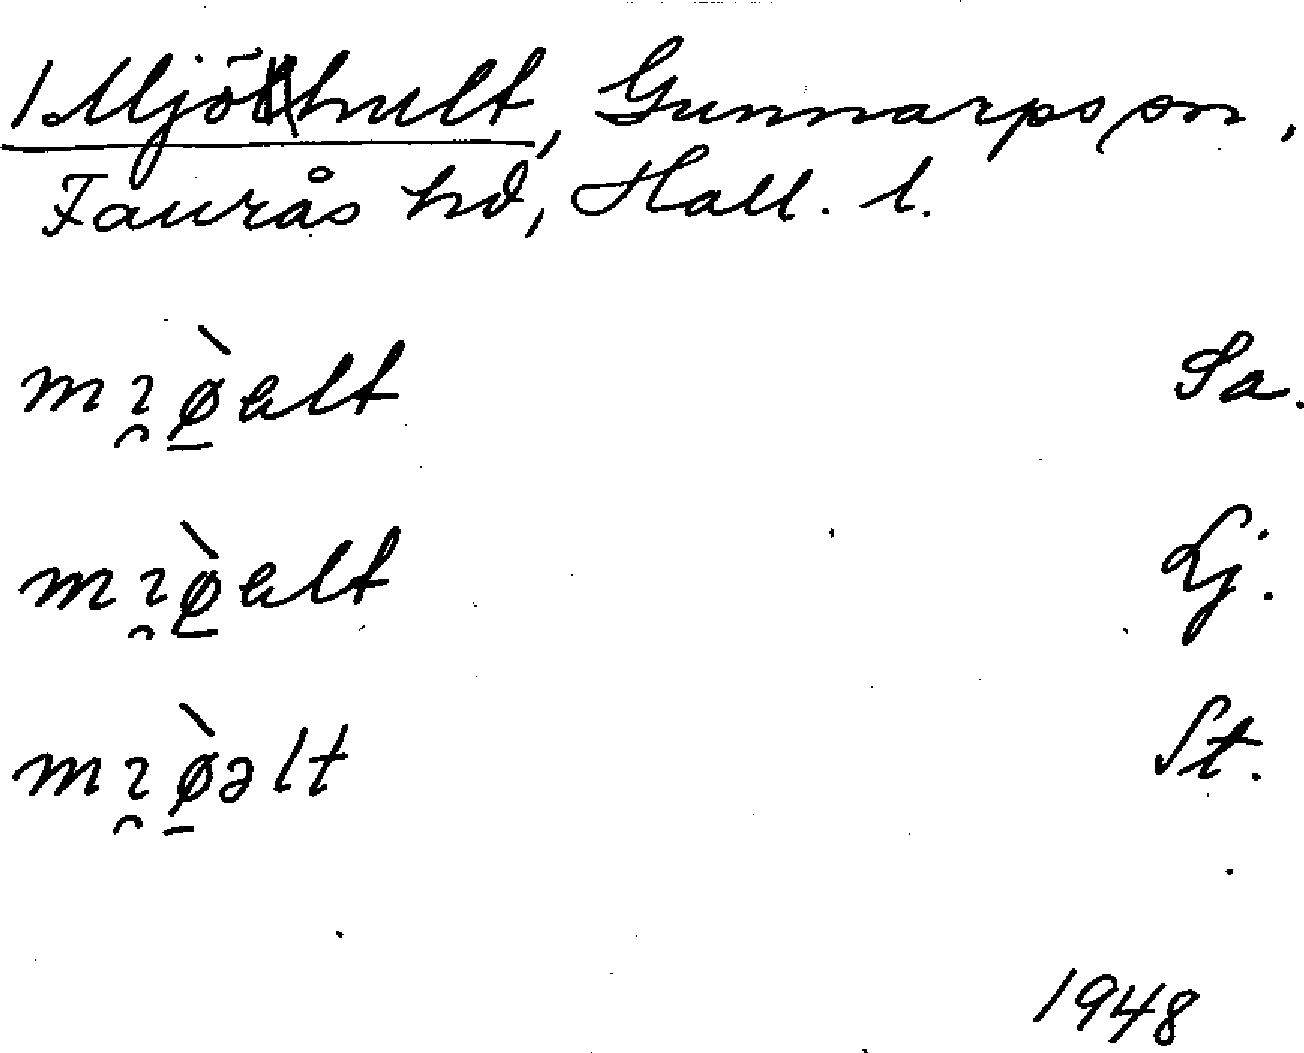 1 Mjöhult, Gunnarps sn,
Faurås hd, Hall. l.
mɿ̯ø̠̀ɐlt Sa.
mɿ̯ø̠̀ɐlt Lj.
mɿ̯ø̠̀əlt St.
1948